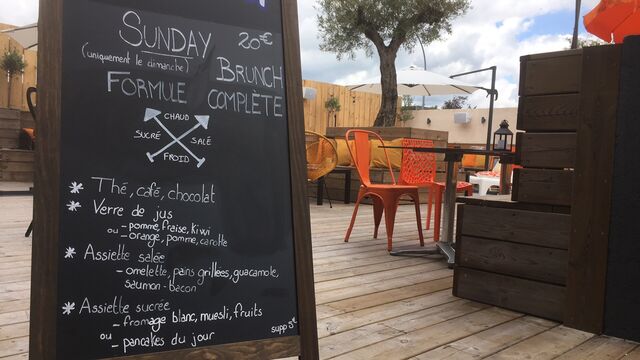 SUNDAY 20€
(uniquement le dimanche) BRUNCH
FORMULE COMPLÈTE
CHAUD
SUCRÉ SALÉ
FROID
* Thé, café, chocolat
* Verre de jus
- pomme, fraise, kiwi
ou - orange, pomme, carotte
* Assiette salée
- omelette, pains grillées, guacamole,
saumon - bacon
* Assiette sucrée
- fromage blanc, muesli, fruits
ou - pancakes du jour